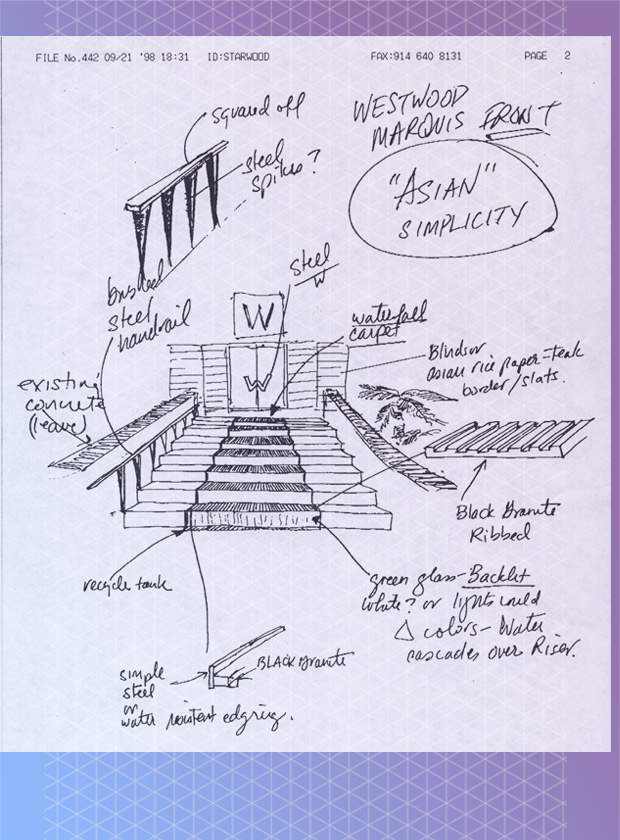 FILE No.442 09/21 '98 18:31 ID:STARWOOD FAX:914 640 8131 PAGE 2
squared off
steel
spikes?
WESTWOOD
MARQUIS FRONT
"ASIAN"
SIMPLICITY
brushed
steel
handrail
steel
W
waterfall
carpet
W
W
Blinds or
asian rice paper-teak
border/slats.
existing
concrete
(leave)
Black Granite
Ribbed
recycle tank
green glass-Backlit
white? or lights could
Δ colors- Water
cascades over Riser.
simple
steel
or
water resistent edging.
BLACK Granite